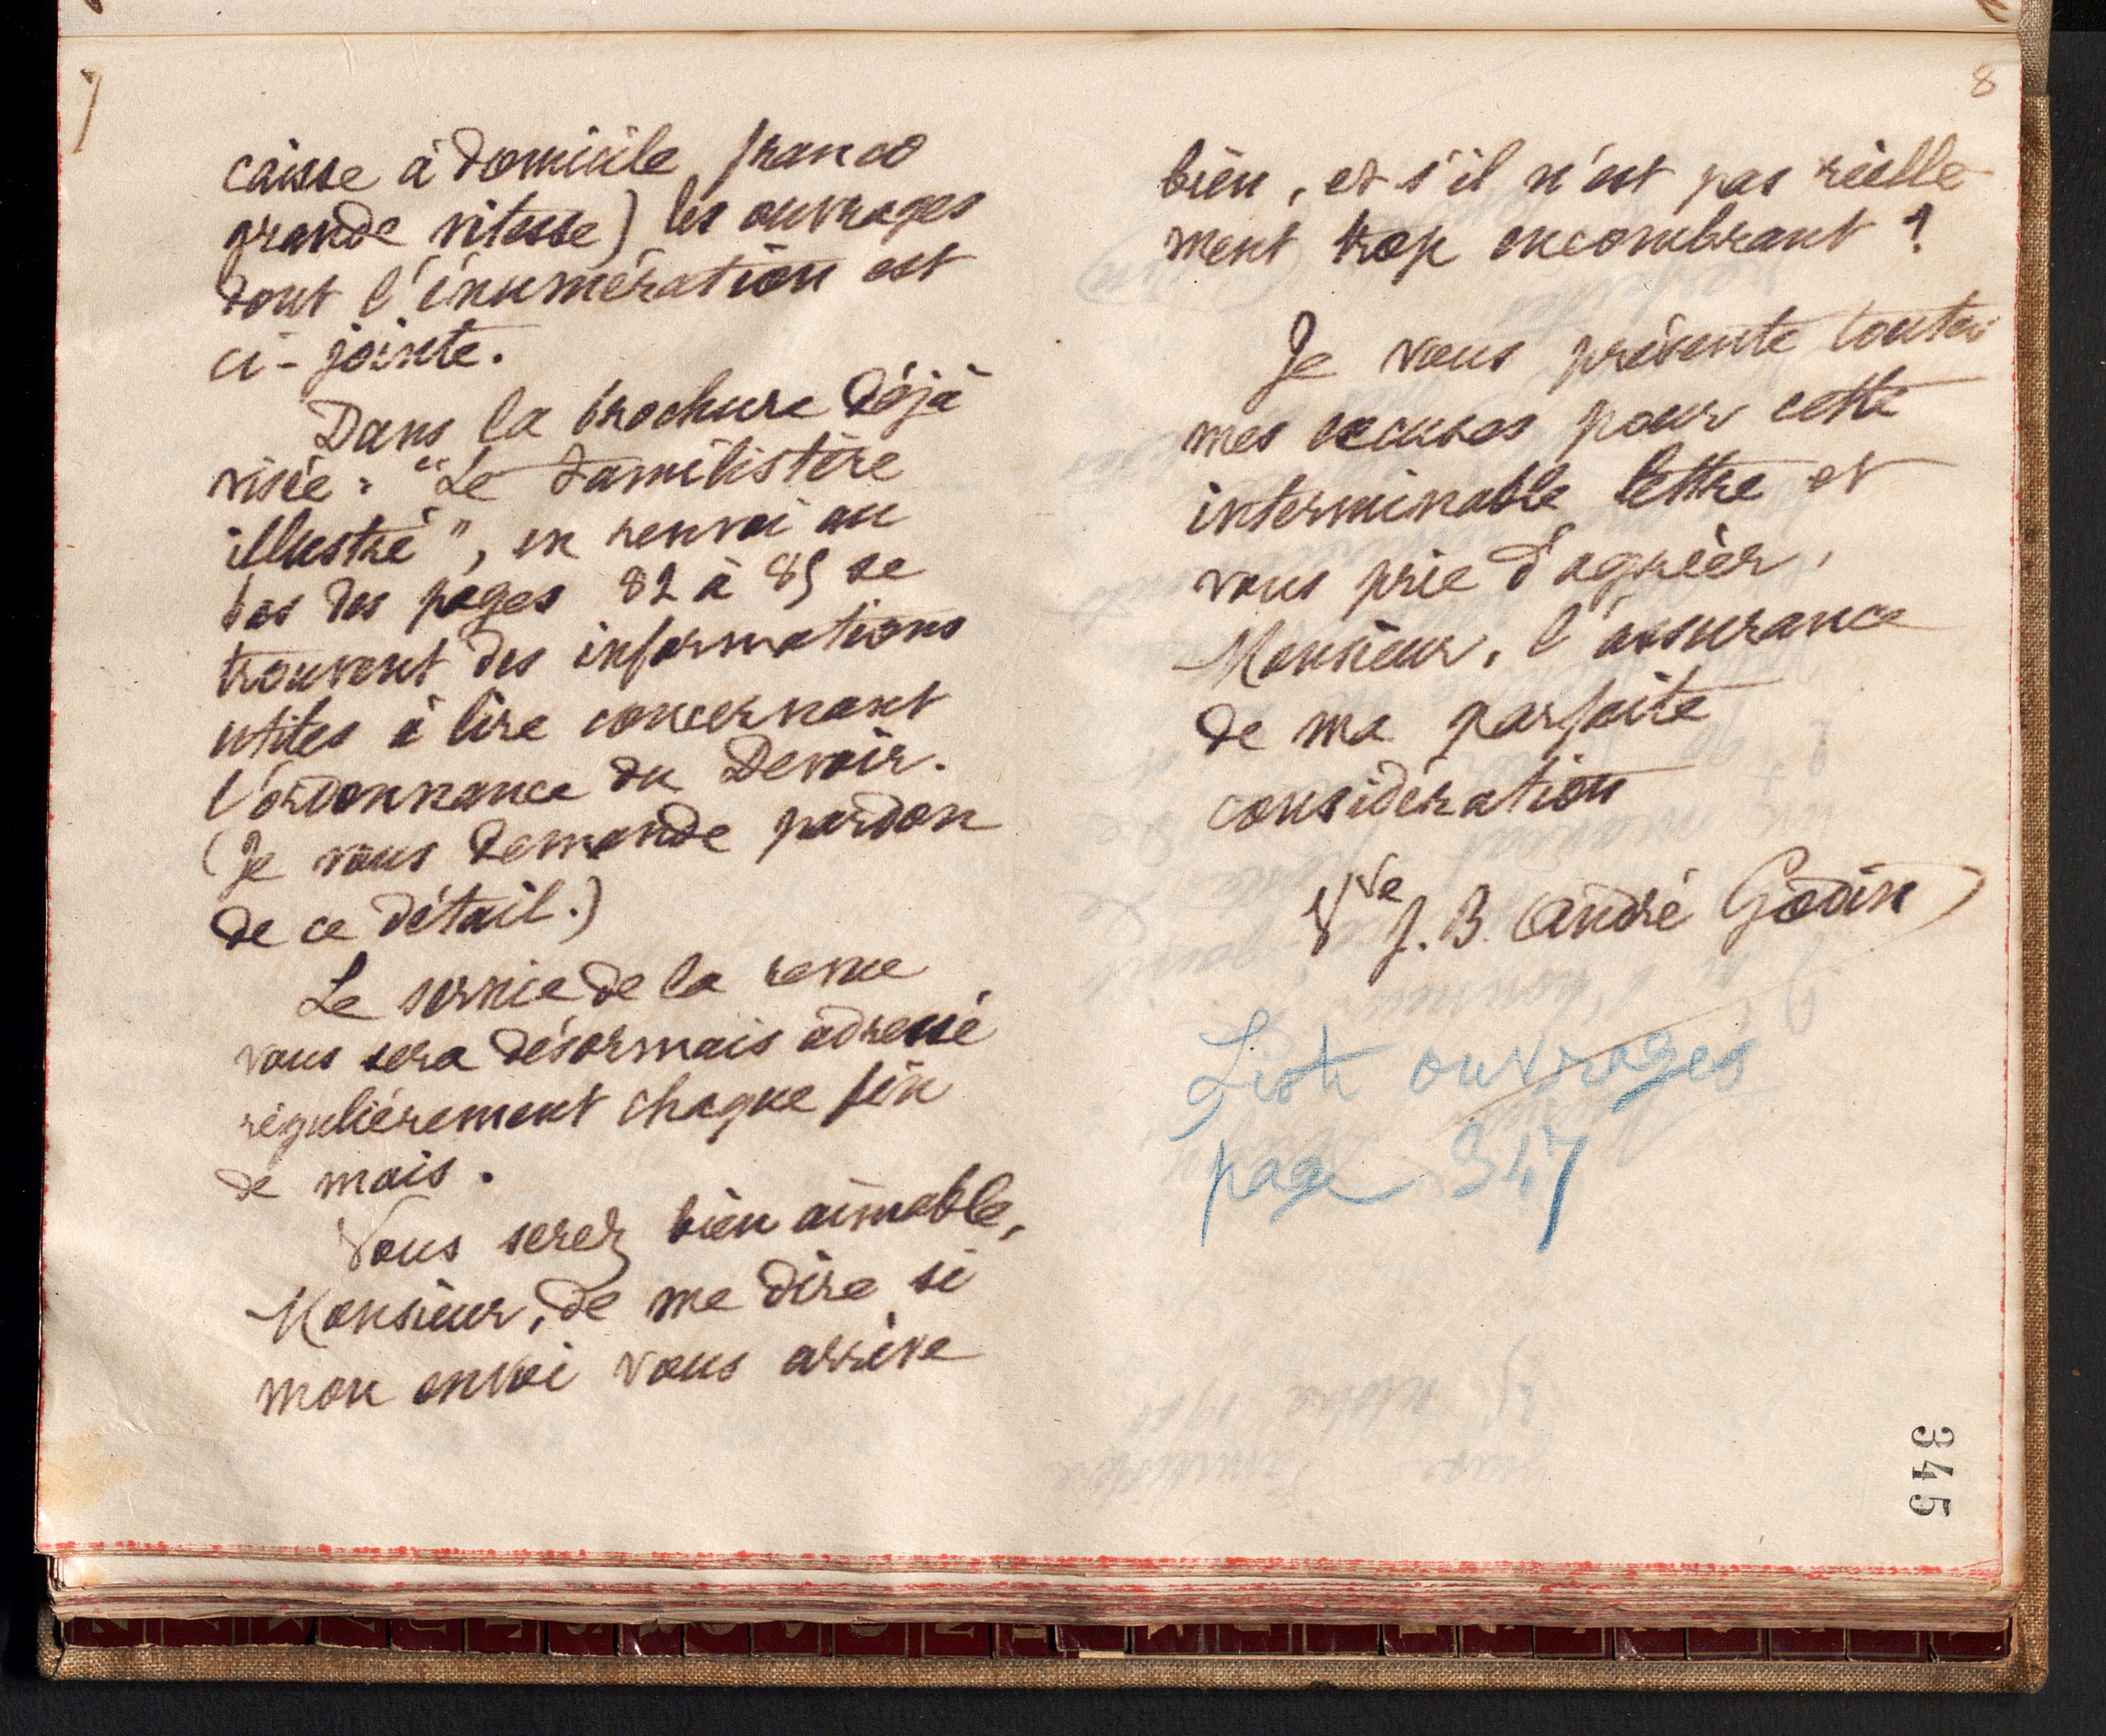 7
caisse à domicile franco
grande vitesse) les ouvrages
dont l'énumération est
ci-jointe.
Dans la brochure déjà
visée : "Le Familistère
illustré", en renvoi au
bas des pages 82 à 85 se
trouvent des informations
utiles à lire concernant
l'ordonnance du Devoir.
(Je vous demande pardon
de ce détail.)
Le service de la revue
vous sera désormais adressé
régulièrement chaque fin
de mois.
Vous serez bien aimable,
Monsieur, de me dire si
mon envoi vous arrive
8
bien, et s'il n'est pas réelle-
ment trop encombrant ?
Je vous présente toutes
mes excuses pour cette
interminable lettre et
vous prie d'agréer,
Monsieur, l'assurance
de ma parfaite
considération
Vve J. B. André Godin
Liste ouvrages
page 347
345